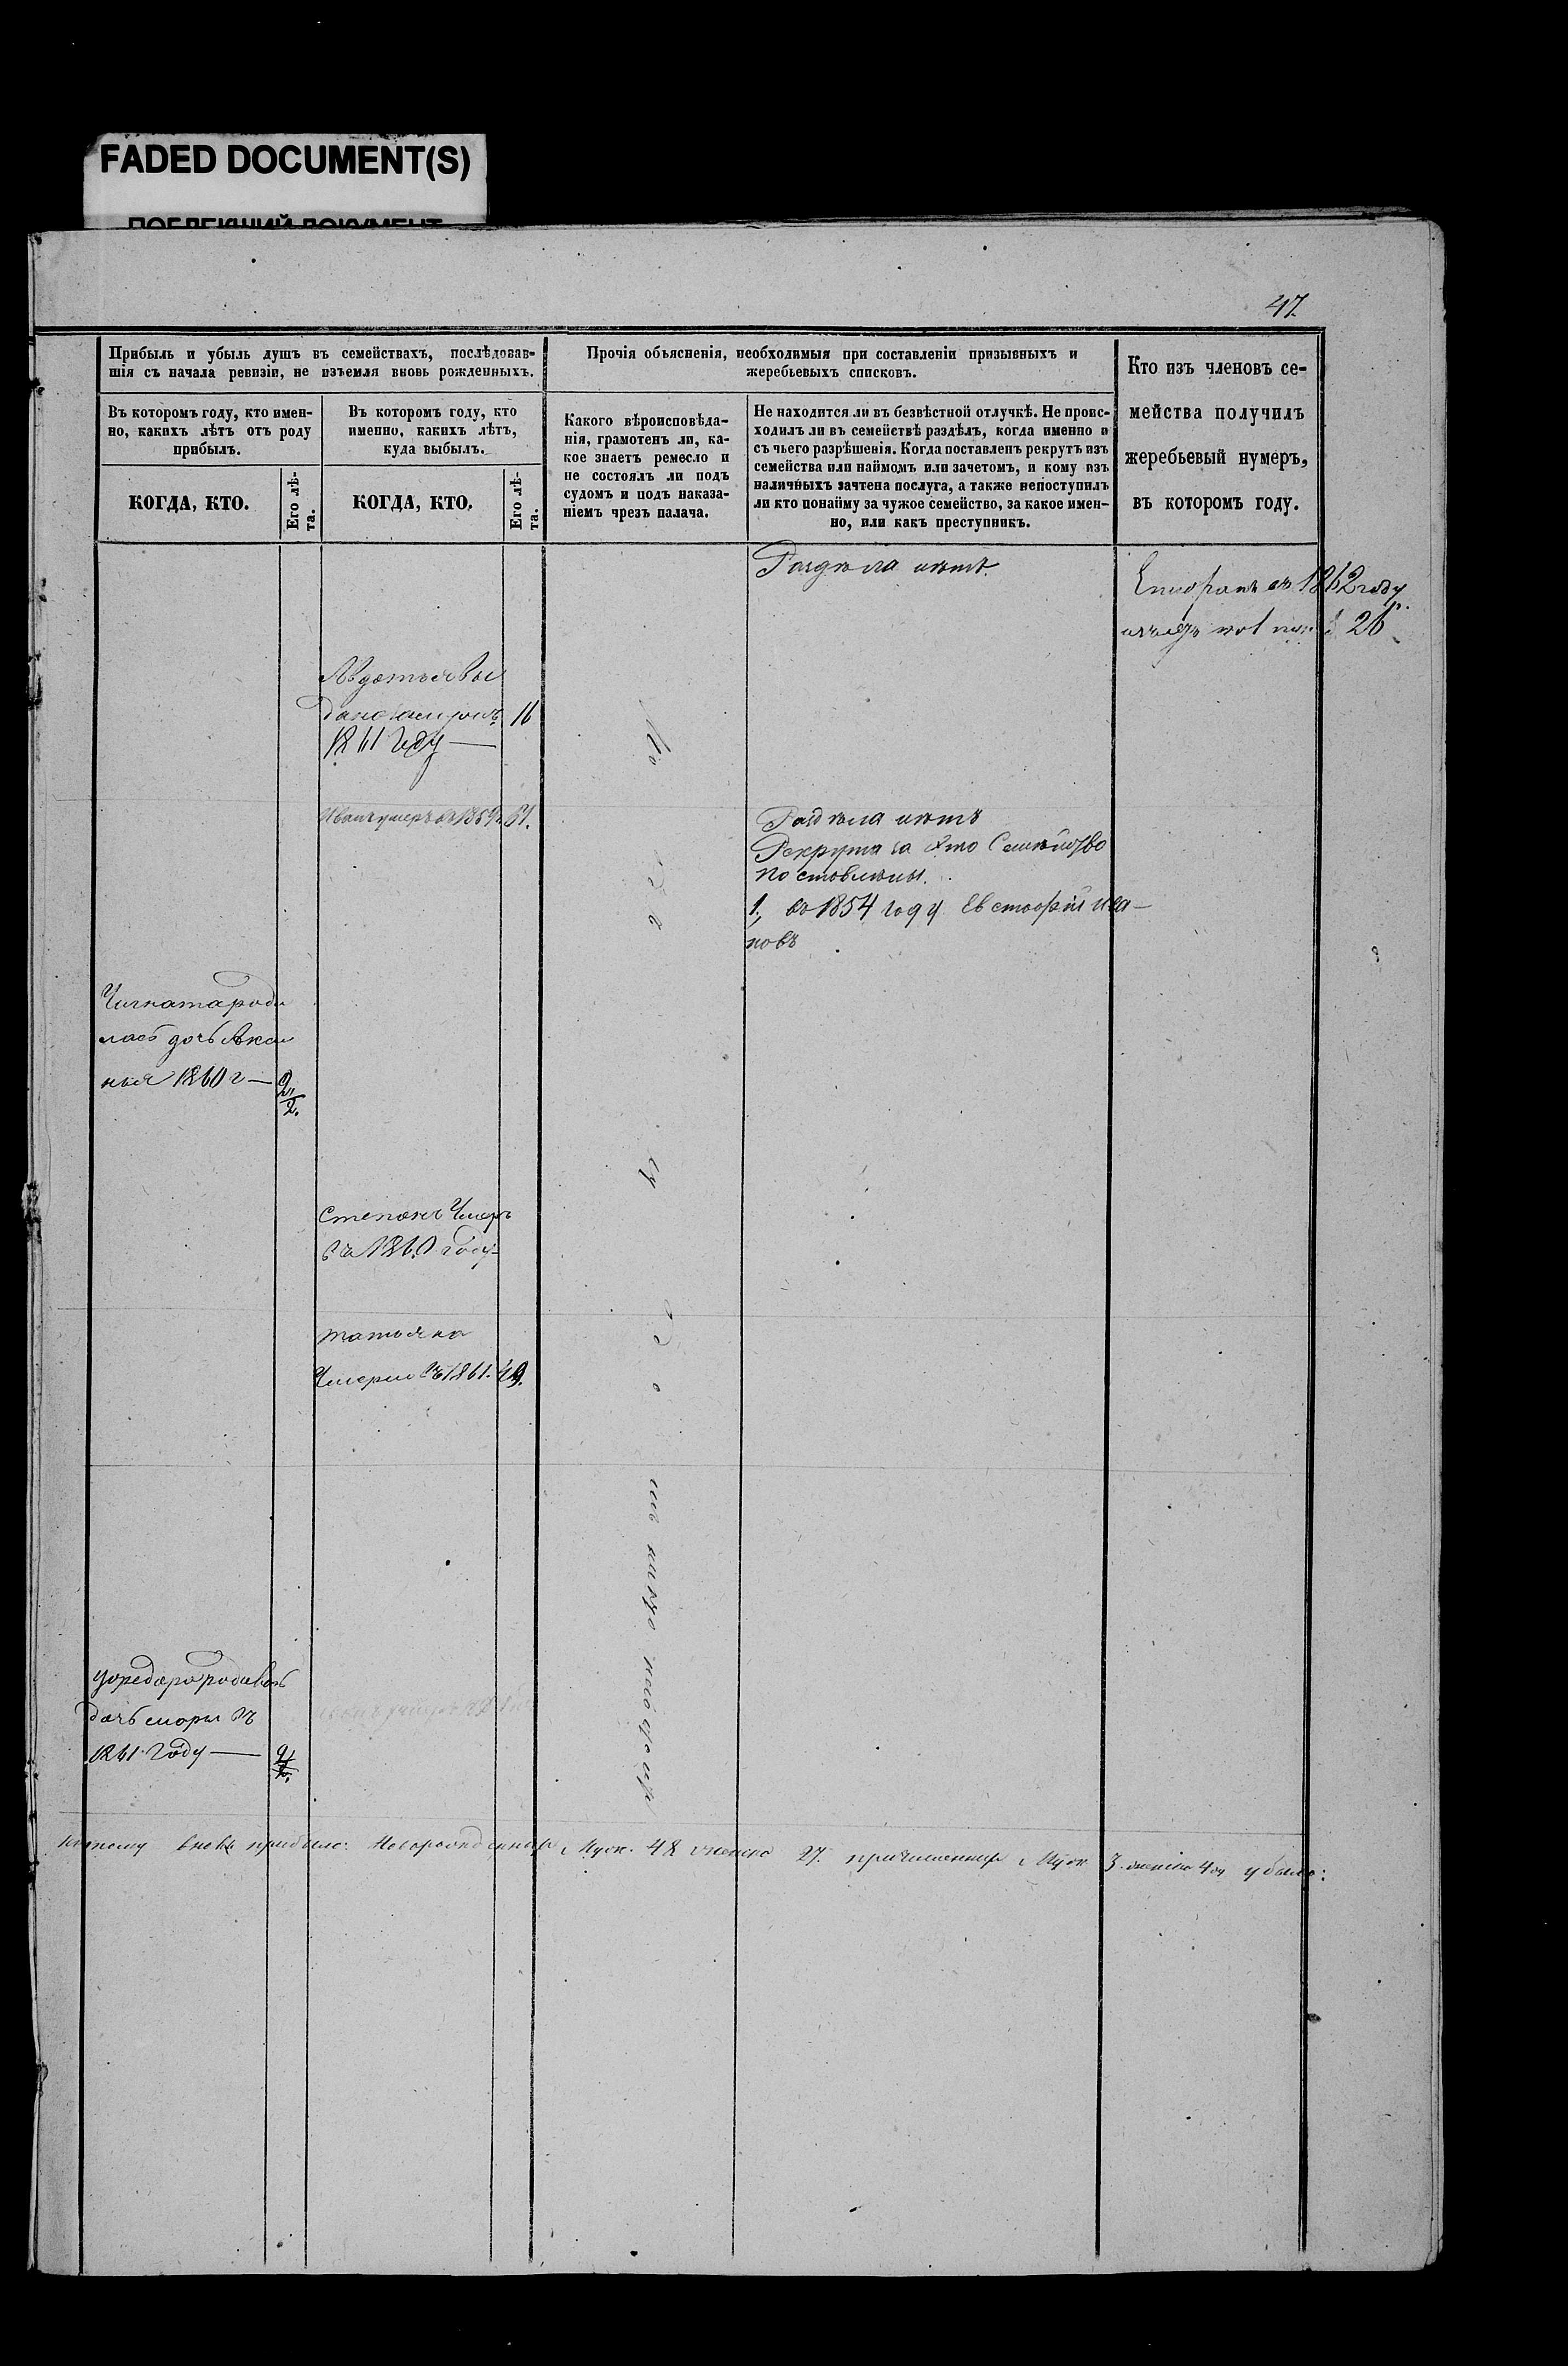 FADED DOCUMENT(S)
ПОБЛЕКШИЙ ДОКУМЕНТ
47.
Прибыль и убыль душъ въ семействахъ, послѣдовав-
шія съ начала ревизіи, не изъемля вновь рожденныхъ.
Въ которомъ году, кто имен-
но, какихъ лѣтъ отъ роду
прибылъ.
КОГДА, КТО.
Его лѣ-
та.
Въ которомъ году, кто
именно, какихъ лѣтъ,
куда выбылъ.
КОГДА, КТО.
Его лѣ-
та.
Прочія объясненія, необходимыя при составленіи призывныхъ и
жеребьевыхъ списковъ.
Какого вѣроисповѣда-
нія, грамотенъ ли, ка-
кое знаетъ ремесло и
не состоялъ ли подъ
судомъ и подъ наказа-
ніемъ чрезъ палача.
Не находится ли въ безвѣстной отлучкѣ. Не проис-
ходилъ ли въ семействѣ раздѣлъ, когда именно и
съ чьего разрѣшенія. Когда поставленъ рекрутъ изъ
семейства или наймомъ или зачетомъ, и кому изъ
наличныхъ зачтена послуга, а также непоступилъ
ли кто понайму за чужое семейство, за какое имен-
но, или какъ преступникъ.
Кто изъ членовъ се-
мейства получилъ
жеребьевый нумеръ,
въ которомъ году.
Раздѣла нѣтъ.
въ 1862 году
26
Авдотья вы
дана 16
1861 году —
Иванъ умеръ въ 1859 г. 61.
Раздѣла нѣтъ
Рекрута за это Семѣйство
поставлены.
1., въ 1854 году Евстафій ива-
новъ
роди
лась дочь Акси
нья 1860 г — 2 1/2.
Степанъ Умеръ
въ 1860 году
татьяна
Умерла въ 1861. 49.
родилась
дочь въ
1861 году —
вновь прибыло: Новорожденныхъ Муж. 48 женска 27. причисленныхъ Муж 3. женска 4 убыло: